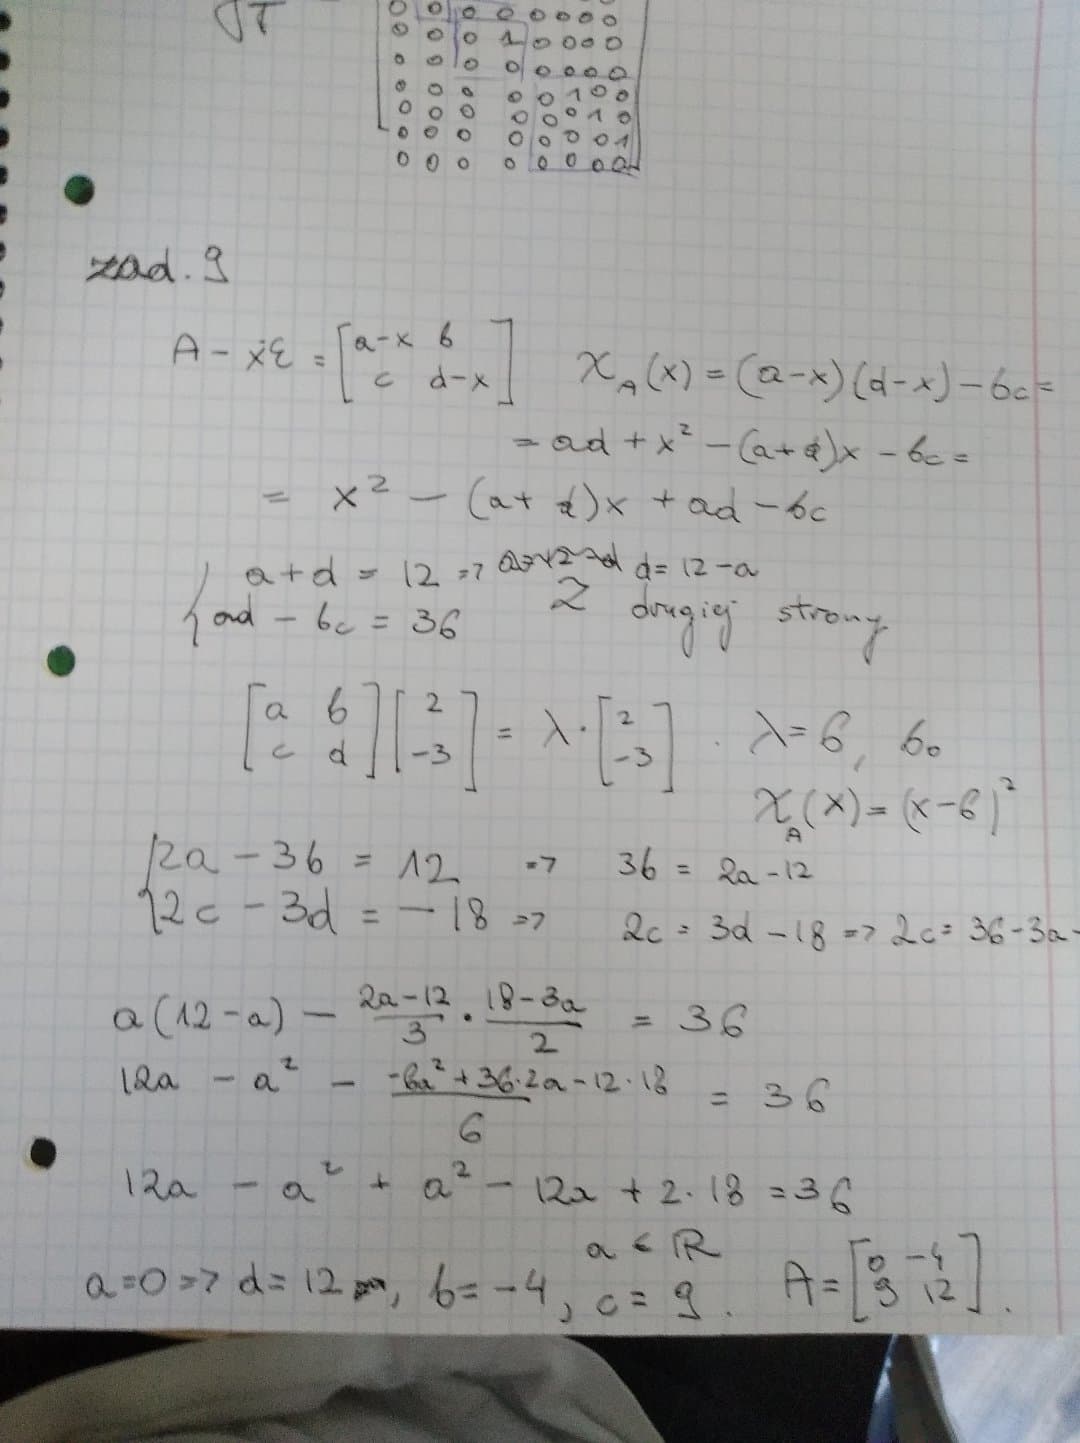 √T
0 0 0 0 0 0 0 0
0 0 0 1 0 0 0 0
0 0 0 0 0 0 0 0
0 0 0 0 0 1 0 0
0 0 0 0 0 0 1 0
0 0 0 0 0 0 0 1
0 0 0 0 0 0 0 0
zad. 9
A - xE = [a-x b; c d-x] χ_A(x) = (a-x)(d-x) - bc =
= ad + x² - (a+d)x - bc =
= x² - (a+d)x + ad - bc
{ a+d = 12 => d = 12-a
ad - bc = 36 Z drugiej strony
[a b; c d][2; -3] = λ·[2; -3]. λ=6, bo
χ_A(x) = (x-6)²
{ 2a - 3b = 12 => 3b = 2a-12
2c - 3d = -18 => 2c = 3d-18 => 2c = 36-3a-
a(12-a) - (2a-12)/3 · (18-3a)/2 = 36
12a - a² - (-6a²+36·2a-12·18)/6 = 36
12a - a² + a² - 12a + 2·18 = 36
a ∈ ℝ
a=0 => d=12, b=-4, c=9. A = [0 -4; 9 12].